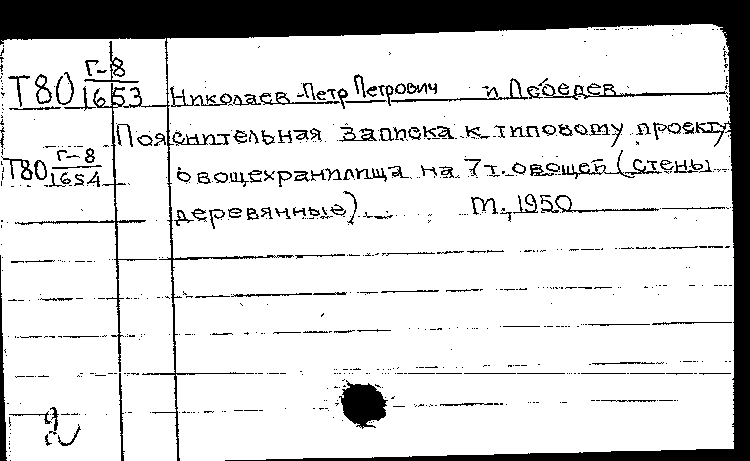 Т80 Г-8
1653 Николаев Петр Петрович и Лебедев.
Пояснительная записка к типовому проекту
Т80 Г-8
1654 овощехранилища на 7т. овощей (стены
деревянные). М., 1950
2